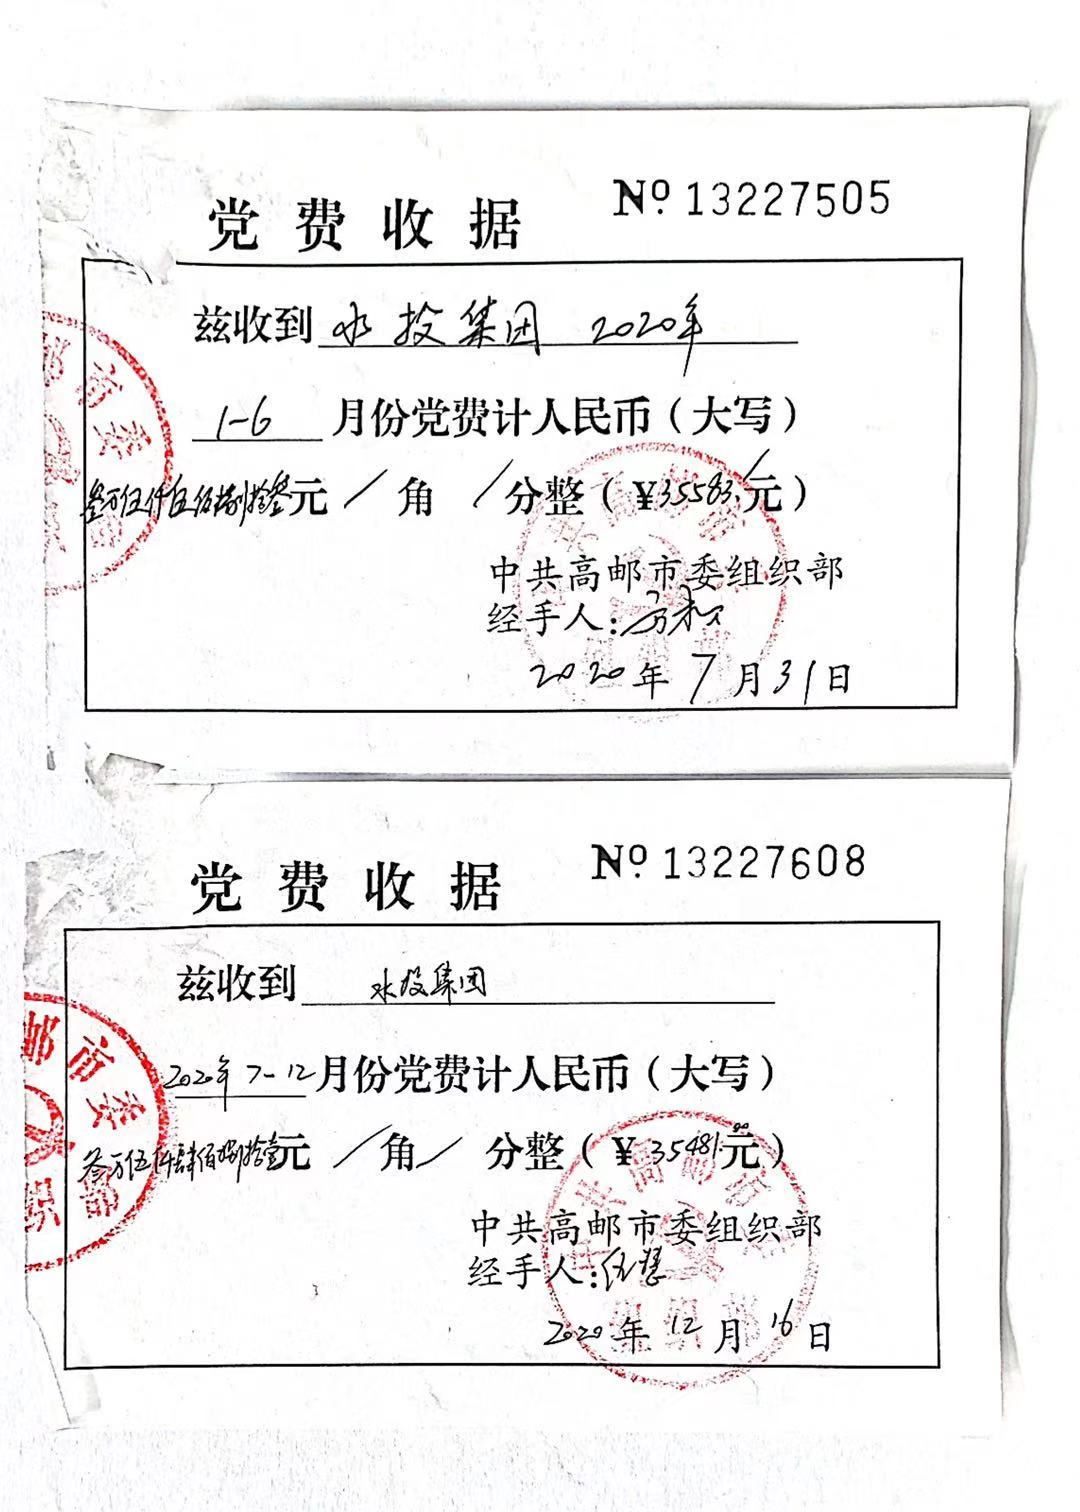 党费收据 № 13227505
兹收到 水投集团 2020年
1-6 月份党费计人民币（大写）
叁万伍仟伍佰捌拾叁元 / 角 / 分整（¥35583.元）
中共高邮市委组织部
经手人：
2020年7月31日
党费收据 № 13227608
兹收到 水投集团
2020年7-12月份党费计人民币（大写）
叁万伍仟肆佰捌拾壹元 / 角 / 分整（¥35481.00元）
中共高邮市委组织部
经手人：
2020年12月16日